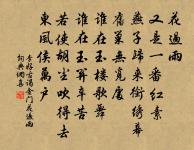 花過雨
又是一番紅素
燕子歸來銜繡幕
舊巢無覓處
誰在玉樓歌舞
誰在玉關辛苦
若使胡塵吹得去
東風侯萬戶
李好古謁金門花過雨